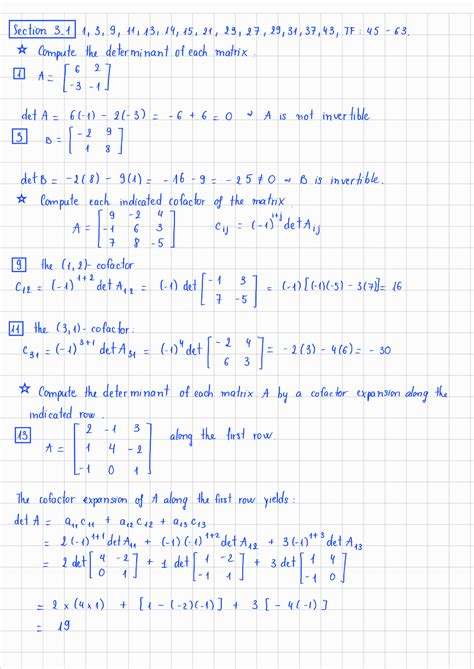 Section 3.1 1, 3, 9, 11, 13, 14, 15, 21, 23, 27, 29, 31, 37, 43, TF: 45 - 63.
☆ Compute the determinant of each matrix.
1 A = [ 6 2
-3 -1 ]
det A = 6(-1) - 2(-3) = -6 + 6 = 0 → A is not invertible
3 B = [ -2 9
1 8 ]
det B = -2(8) - 9(1) = -16 - 9 = -25 ≠ 0 → B is invertible.
☆ Compute each indicated cofactor of the matrix
A = [ 9 -2 4
-1 6 3
7 8 -5 ] C_ij = (-1)^(i+j) det A_ij
9 the (1,2)- cofactor
C_12 = (-1)^(1+2) det A_12 = (-1) det [ -1 3
7 -5 ] = (-1)[(-1)(-5) - 3(7)] = 16
11 the (3,1)- cofactor:
C_31 = (-1)^(3+1) det A_31 = (-1)^4 det [ -2 4
6 3 ] = -2(3) - 4(6) = -30
☆ Compute the determinant of each matrix A by a cofactor expansion along the
indicated row.
13 A = [ 2 -1 3
1 4 -2
-1 0 1 ] along the first row.
The cofactor expansion of A along the first row yields:
det A = a_11 c_11 + a_12 c_12 + a_13 c_13
= 2(-1)^(1+1) det A_11 + (-1)(-1)^(1+2) det A_12 + 3(-1)^(1+3) det A_13
= 2 det [ 4 -2
0 1 ] + 1 det [ 1 -2
-1 1 ] + 3 det [ 1 4
-1 0 ]
= 2 × (4 × 1) + [1 - (-2)(-1)] + 3 [ - 4(-1)]
= 19